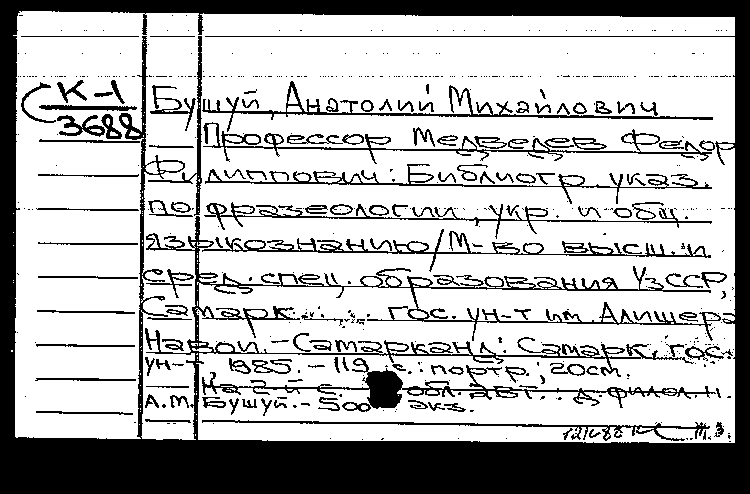 К-1
3688
Бушуй, Анатолий Михайлович
Профессор Медведев Федор
Филиппович: Библиогр. указ.
по фразеологии, укр. и общ.
языкознанию/М-во высш. и
сред. спец. образования УзССР,
Самарк. гос. ун-т им. Алишера
Навои. - Самарканд: Самарк. гос.
ун-т, 1985. - 119 с.: портр.; 20см.
На 2-й с. обл. авт.: д. филол. н.
А.М. Бушуй. - 500 экз.